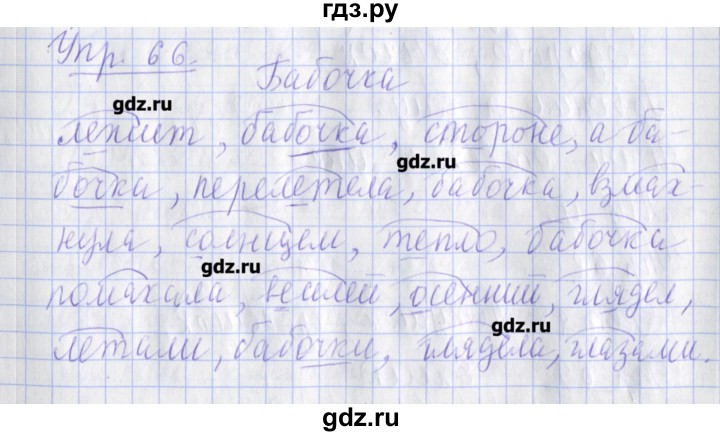 гдз.ру
Упр. 66.
Бабочка
gdz.ru
лежит, бабочка, стороне, а ба-
gdz.ru
бочка, перелетела, бабочка, взмах-
нула, солнцем, тепло, бабочка
gdz.ru
помахала, землёй, осенний, глядел,
gdz.ru
летали, бабочки, глядела, глазами.
gdz.ru